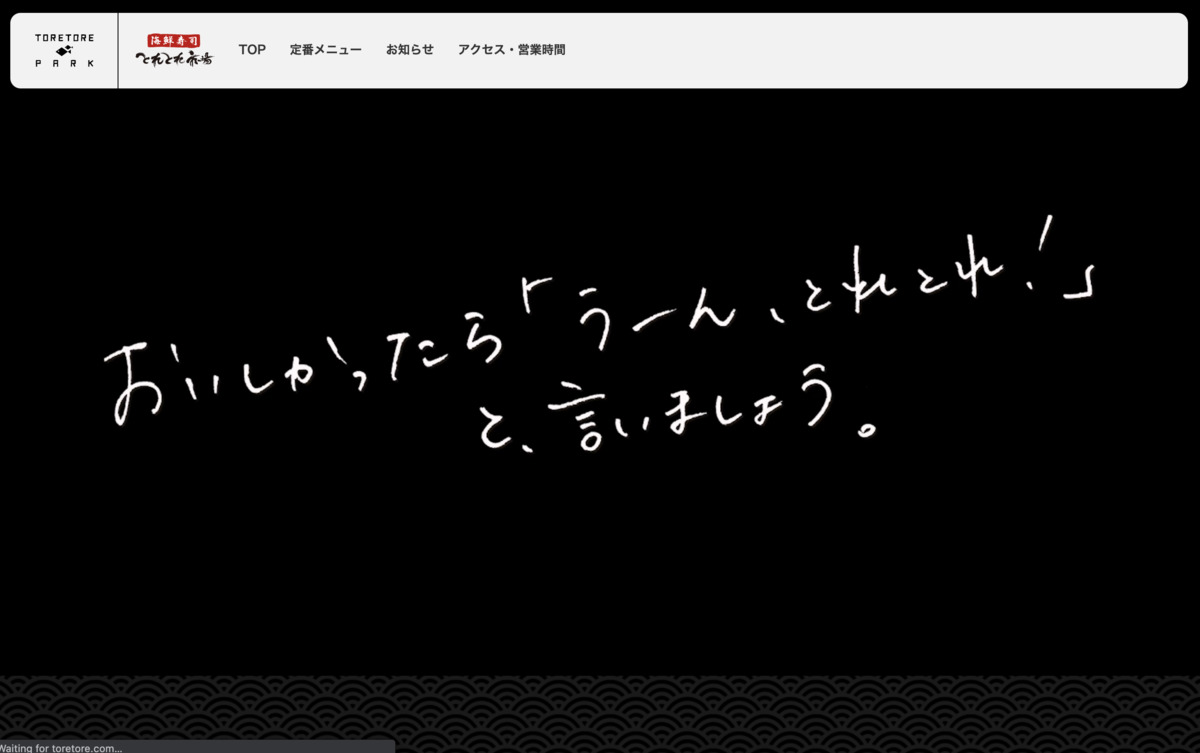 TORETORE
PARK
海鮮寿司
とれとれ市場
TOP
定番メニュー
お知らせ
アクセス・営業時間
おいしかったら「うーん、とれとれ！」
と、言いましょう。
Waiting for toretore.com...